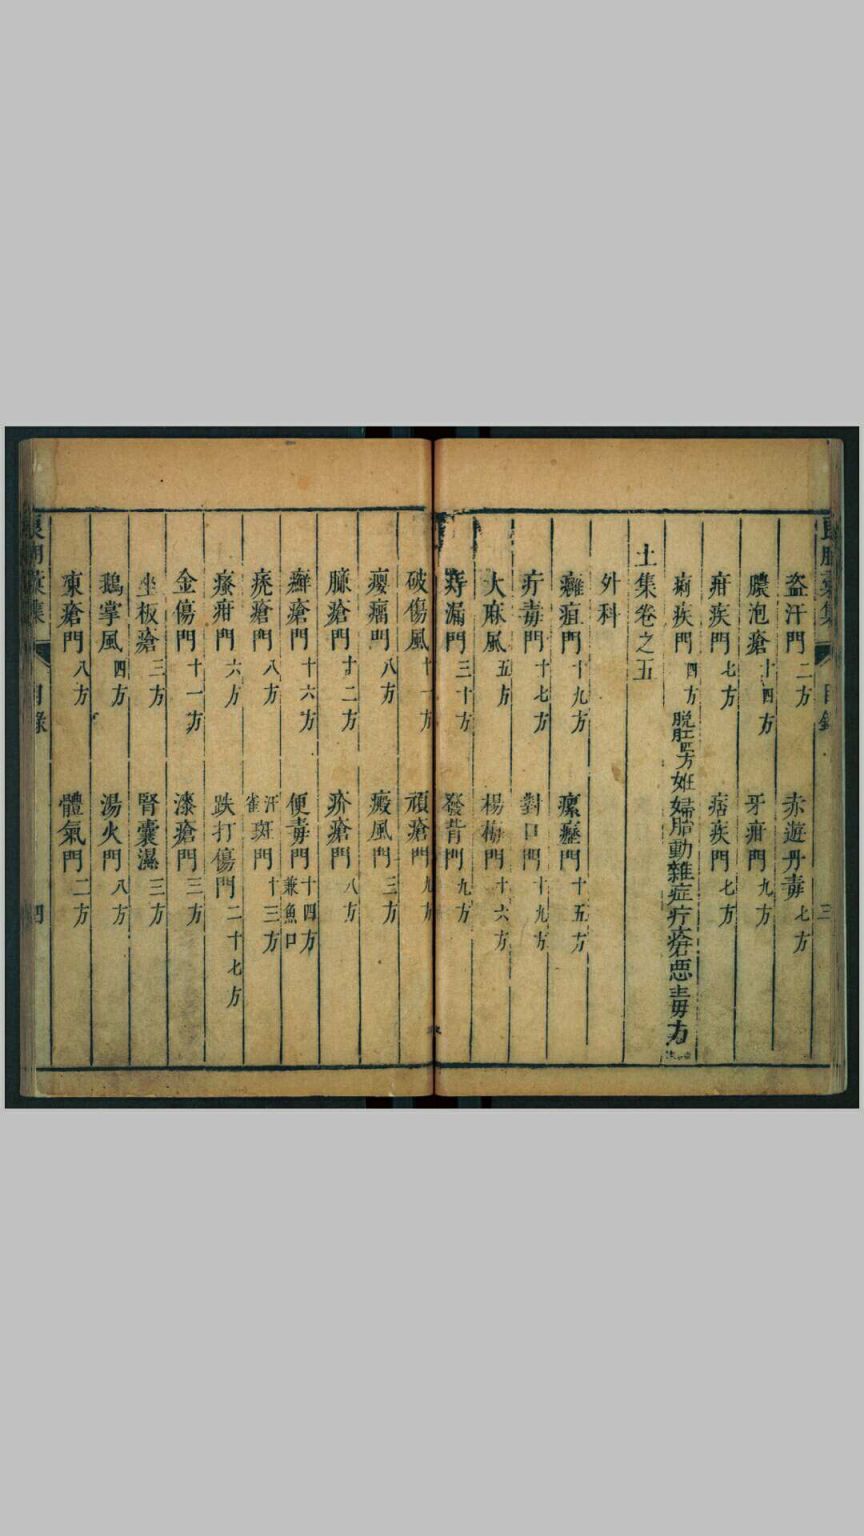 盜汗門二方　赤遊丹毒七方
膿泡瘡十四方　牙疳門九方
疳疾門七方　痞疾門七方
痢疾門四方　脱肛四方　妊婦胎動雜症疔瘡惡毒方
土集卷之五
外科
癰疽門十九方　瘰癧門十五方
疔毒門十七方　對口門十九方
大麻風五方　楊梅門十六方
痔漏門三十方　發背門九方
破傷風十一方　頑瘡門九方
癭瘤門八方　癜風門三方
臁瘡門十二方　疥瘡門八方
癬瘡門十六方　便毒門十四方兼魚口
疣瘡門八方　汗雀斑門十三方
瘊疳門六方　跌打傷門二十七方
金傷門十一方　漆瘡門三方
坐板瘡三方　腎囊濕三方
鵝掌風四方　湯火門八方
凍瘡門八方　體氣門二方
目錄　四